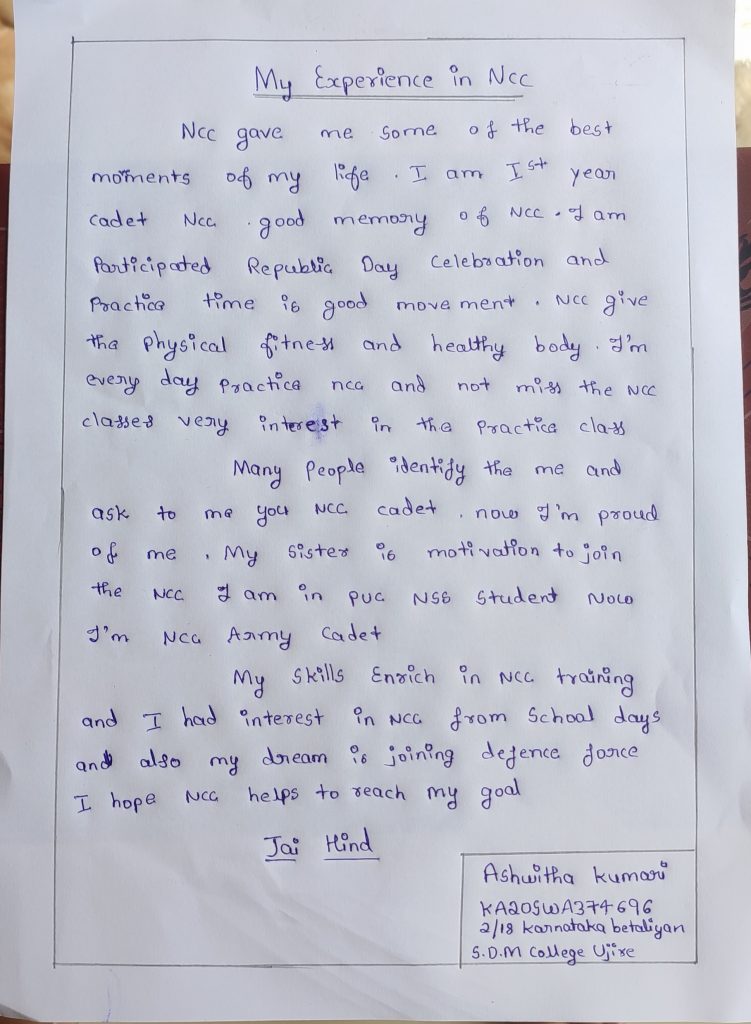 My Experience in Ncc
Ncc gave me some of the best
moments of my life. I am Ist year
cadet Ncc. good memory of NCC. I am
Participated Republic Day Celebration and
Practice time is good move ment. NCC give
the physical fitness and healthy body. I'm
every day practice ncc and not miss the NCC
classes very interest in the Practice class
Many People identify the me and
ask to me you NCC cadet. now I'm proud
of me. My Sister is motivation to join
the NCC I am in PUC NSS Student Now
I'm NCC Army Cadet
My Skills Enrich in NCC training
and I had interest in NCC from School days
and also my dream is joining defence force
I hope NCC helps to reach my goal
Jai Hind
Ashwitha Kumari
KA20SWA374696
2/18 Karnataka betaliyan
S.D.M College Ujire